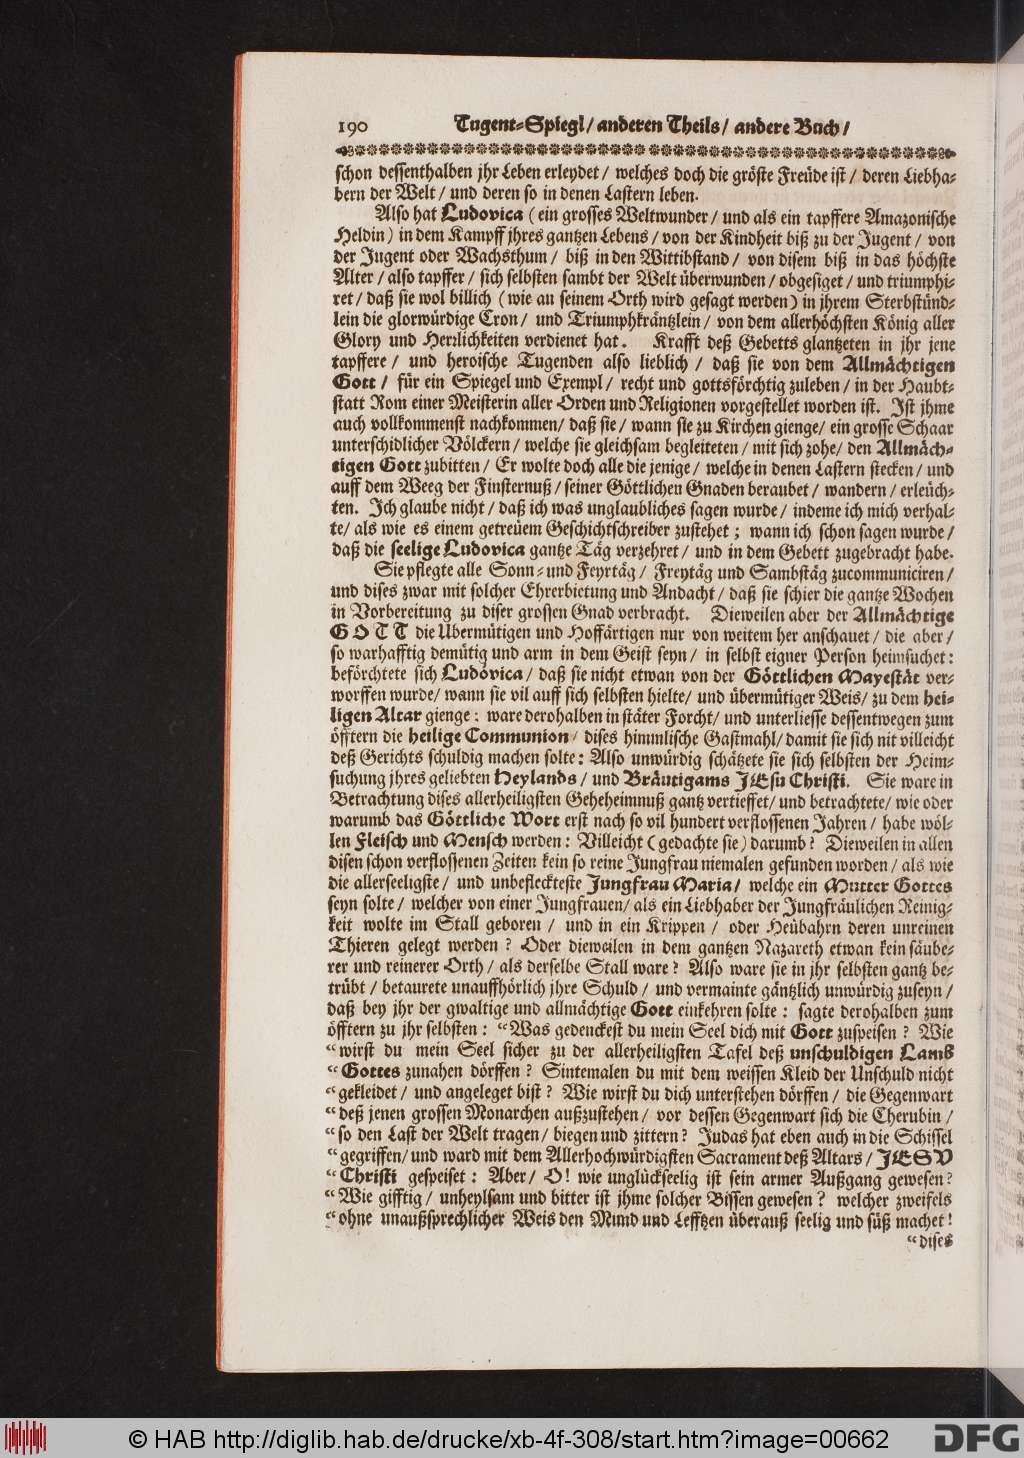 190 Tugent-Spiegl/ anderen Theils/ andere Buch/
schon dessenthalben jhr Leben erleydet/ welches doch die gröste Freüde ist/ deren Liebha-
bern der Welt/ und deren so in denen Lastern leben.
Also hat Ludovica (ein grosses Weltwunder/ und als ein tapffere Amazonische
Heldin) in dem Kampff jhres gantzen Lebens/ von der Kindheit biß zu der Jugent/ von
der Jugent oder Wachsthum/ biß in den Wittibstand/ von disem biß in das höchste
Alter/ also tapffer/ sich selbsten sambt der Welt überwunden/ obgesiget/ und triumphi-
ret/ daß sie wol billich (wie an seinem Orth wird gesagt werden) in jhrem Sterbstünd-
lein die glorwürdige Cron/ und Triumphkräntzlein/ von dem allerhöchsten König aller
Glory und Herrlichkeiten verdienet hat. Krafft deß Gebetts glantzeten in jhr jene
tapffere/ und heroische Tugenden also lieblich/ daß sie von dem Allmächtigen
Gott/ für ein Spiegel und Exempl/ recht und gottsförchtig zuleben/ in der Haubt-
statt Rom einer Meisterin aller Orden und Religionen vorgestellet worden ist. Ist jhme
auch vollkommenst nachkommen/ daß sie/ wann sie zu Kirchen gienge/ ein grosse Schaar
unterschidlicher Völckern/ welche sie gleichsam begleiteten/ mit sich zohe/ den Allmäch-
tigen Gott zubitten/ Er wolte doch alle die jenige/ welche in denen Lastern stecken/ und
auff dem Weeg der Finsternuß/ seiner Göttlichen Gnaden beraubet/ wandern/ erleüch-
ten. Ich glaube nicht/ daß ich was unglaubliches sagen wurde/ indeme ich mich verhal-
te/ als wie es einem getreüem Geschichtschreiber zustehet; wann ich schon sagen wurde/
daß die seelige Ludovica gantze Täg verzehret/ und in dem Gebett zugebracht habe.
Sie pflegte alle Sonn- und Feyrtäg/ Freytäg und Sambstäg zucommuniciren/
und dises zwar mit solcher Ehrerbietung und Andacht/ daß sie schier die gantze Wochen
in Vorbereitung zu diser grossen Gnad verbracht. Dieweilen aber der Allmächtige
GOTT die Übermütigen und Hoffärtigen nur von weitem her anschauet/ die aber/
so warhafftig demütig und arm in dem Geist seyn/ in selbst eigner Person heimsuchet:
beförchtete sich Ludovica/ daß sie nicht etwan von der Göttlichen Mayestät ver-
worffen wurde/ wann sie vil auff sich selbsten hielte/ und übermütiger Weis/ zu dem hei-
ligen Altar gienge: ware derohalben in stäter Forcht/ und unterliesse dessentwegen zum
öfftern die heilige Communion/ dises himmlische Gastmahl/ damit sie sich nit villeicht
deß Gerichts schuldig machen solte: Also unwürdig schätzete sie sich selbsten der Heim-
suchung jhres geliebten Heylands/ und Bräutigams JEsu Christi. Sie ware in
Betrachtung dises allerheiligsten Geheheimnuß gantz vertieffet/ und betrachtete/ wie oder
warumb das Göttliche Wort erst nach so vil hundert verflossenen Jahren/ habe wöl-
len Fleisch und Mensch werden: Villeicht (gedachte sie) darumb? Dieweilen in allen
disen schon verflossenen Zeiten kein so reine Jungfrau niemalen gefunden worden/ als wie
die allerseeligste/ und unbefleckteste Jungfrau Maria/ welche ein Mutter Gottes
seyn solte/ welcher von einer Jungfrauen/ als ein Liebhaber der Jungfräulichen Reinig-
keit wolte im Stall geboren/ und in ein Krippen/ oder Heübahrn deren unreinen
Thieren gelegt werden? Oder dieweilen in dem gantzen Nazareth etwan kein säube-
rer und reinerer Orth/ als derselbe Stall ware? Also ware sie in jhr selbsten gantz be-
trübt/ betaurete unauffhörlich jhre Schuld/ und vermainte gäntzlich unwürdig zuseyn/
daß bey jhr der gwaltige und allmächtige Gott einkehren solte: sagte derohalben zum
öfftern zu jhr selbsten: “Was gedenckest du mein Seel dich mit Gott zuspeisen? Wie
“wirst du mein Seel sicher zu der allerheiligsten Tafel deß unschuldigen Lamb
“Gottes zunahen dörffen? Sintemalen du mit dem weissen Kleid der Unschuld nicht
“gekleidet/ und angeleget bist? Wie wirst du dich unterstehen dörffen/ die Gegenwart
“deß jenen grossen Monarchen außzustehen/ vor dessen Gegenwart sich die Cherubin/
“so den Last der Welt tragen/ biegen und zittern? Judas hat eben auch in die Schissel
“gegriffen/ und ward mit dem Allerhochwürdigsten Sacrament deß Altars/ JESU
“Christi gespeiset: Aber/ O! wie unglückseelig ist sein armer Außgang gewesen?
“Wie gifftig/ unheylsam und bitter ist jhme solcher Bissen gewesen? welcher zweifels
“ohne unaußsprechlicher Weis den Mund und Lefftzen überauß seelig und süß machet!
“dises
© HAB http://diglib.hab.de/drucke/xb-4f-308/start.htm?image=00662
DFG